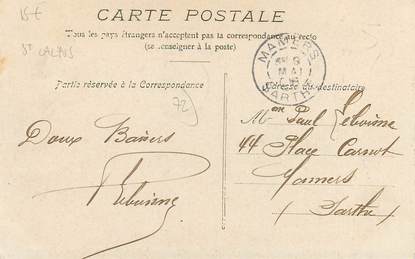 15€
St CALAIS
CARTE POSTALE
Tous les pays étrangers n'acceptent pas la correspondance au recto
(se renseigner à la poste)
MAMERS
9
MAI
SARTHE
Partie réservée à la Correspondance
Adresse du destinataire
72
Doux Baisers
Mme Paul Leboisne
44 Place Carnot
Mamers
(Sarthe)